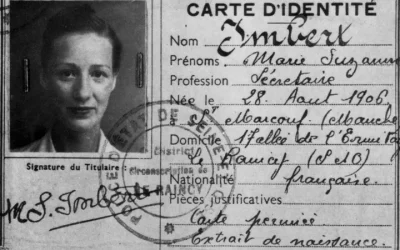 CARTE D'IDENTITÉ
Nom Imbert
Prénoms Marie Suzanne
Profession Secrétaire
Née le 28 Aout 1906
St Marcouf (Manche
Domicile 17 allée de l'Ermitag
Le Raincy (S&O)
Nationalité française.
Pièces justificatives
Carte périmée
Extrait de naissance.
Signature du Titulaire :
M S Imbert
DE SEINE
District
Circonscription de
LE RAINCY